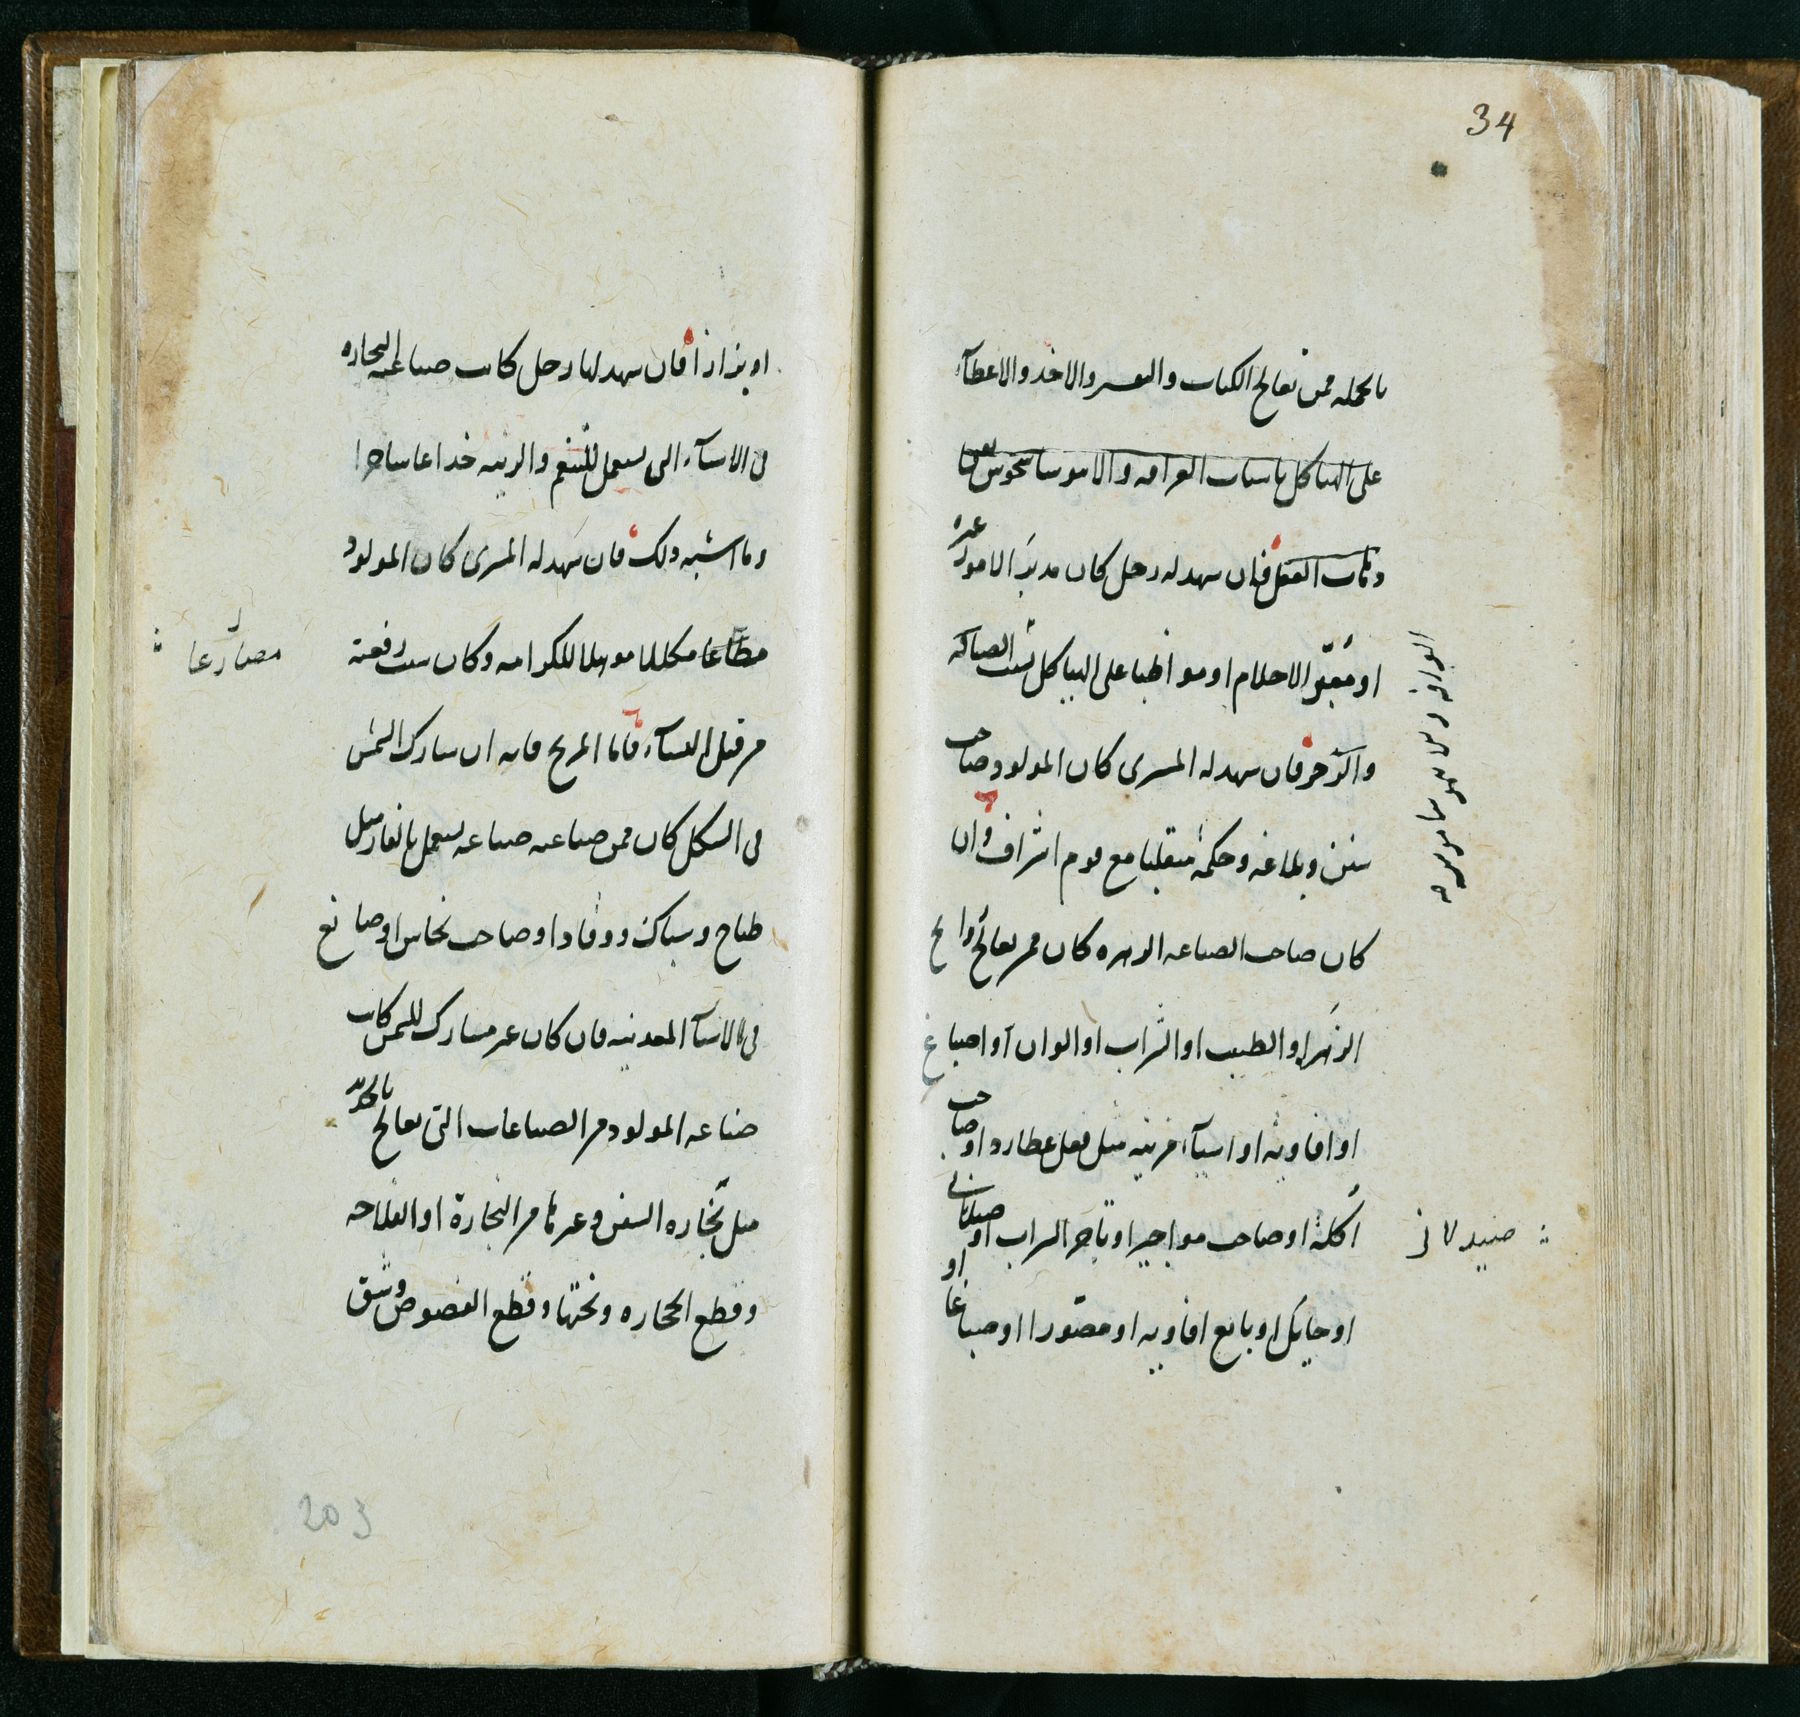 34
بالجمله ممن تعالج الكتاب والتفسير والاخذ والاعطآء
على الهياكل باسباب العرافه والاموسا
وثبات العقل فان شهد له زحل كان مدبر الامور غيره
او معبر الاحلام او مواظبا على الهياكل
فان شهد له المشترى كان المولود صاحب
سنن وبلاغة وحكمة متقلبا مع قوم اشراف وان
كان صاحب الصناعه الزهره كان ممن يعالج روايح
الزهر او الطيب او الشراب او الوان او اصباغ
او افاويه او اشيآء مزينه مثل فعل عطارد او صاحب
او صاحب مواجير او تاجر الشراب او صيدلانى
او حايكا او بايع افاويه او مصورا او صباغا او
صيدلانى
او بزازا فان شهد لها زحل كانت صناعته التجاره
فى الاشيآء التى يستعمل للتنعم والزينه خداعا ساحرا
وما اشبه ذلك فان شهد له المشترى كان المولود
مكللا موهلا للكرامه وكان سبب رفعته
مصارعا
من قبل النسآء فاما المريخ فانه ان شارك الشمس
فى الشكل كان ممن صناعته صناعه يستعمل بالنار مثل
طباخ وسباك ووقاد او صاحب نحاس او صانع
فى الاشيآء المعدنيه فان كان غير مشارك للشمس كانت
صناعه المولود من الصناعات التى يعالج بالحديد
مثل نجاره السفن وغيرها من النجارة او الفلاحه
وقطع الحجاره ونحتها وقطع الفصوص وشق
203